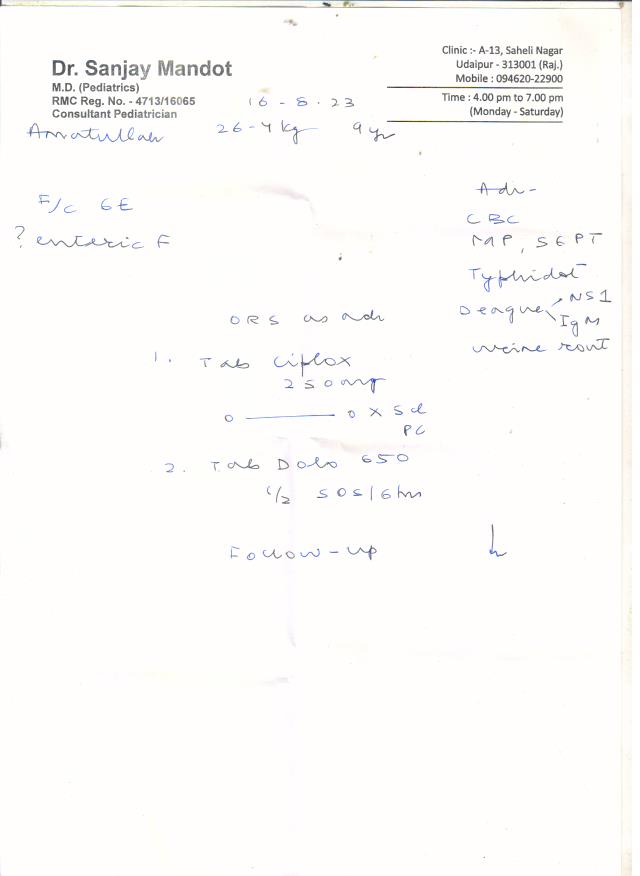 Dr. Sanjay Mandot
M.D. (Pediatrics)
RMC Reg. No. - 4713/16065
Consultant Pediatrician
Clinic :- A-13, Saheli Nagar
Udaipur - 313001 (Raj.)
Mobile : 094620-22900
Time : 4.00 pm to 7.00 pm
(Monday - Saturday)
16 - 8 . 23
Amatullah 26-4 kg 9 yr
F/c GE
? enteric F
Adv -
CBC
MP, SGPT
Typhidot
Dengue NS1
IgM
urine rout
ORS as adv
1. Tab Ciplox
250mg
0 —— 0 x 5d
PC
2. Tab Dolo 650
1/2 SOS/6hrs
Follow-up